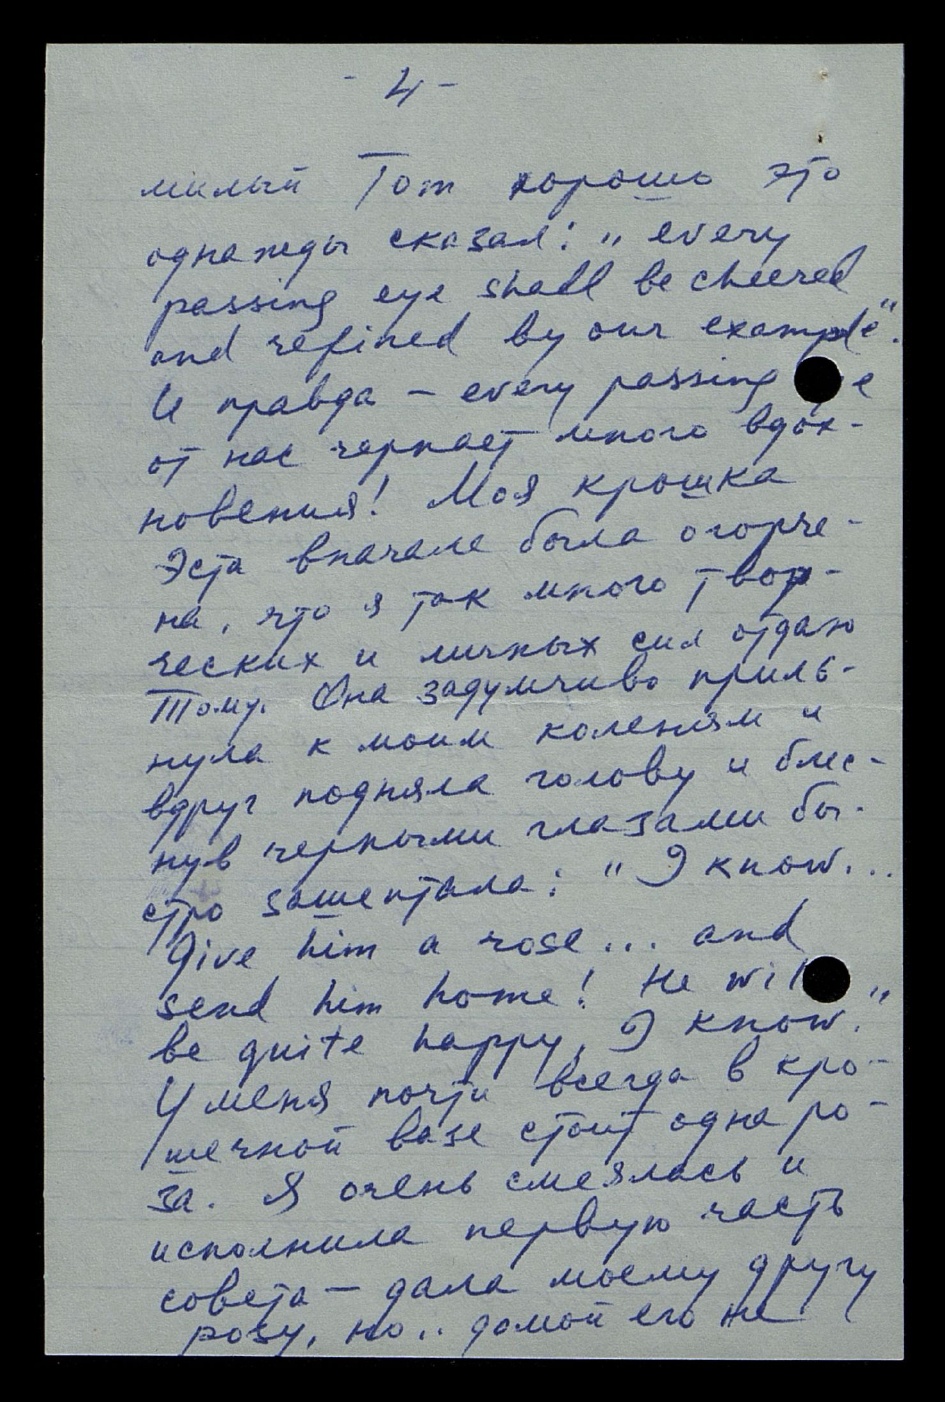 - 4 -
милый Том хорошо это
однажды сказал: „every
passing eye shall be cheered
and refined by our example".
И правда - every passing e
от нас черпает много вдох-
новения! Моя крошка
Эста вначале была огорче-
на, что я так много твор-
ческих и личных сил отдаю
Тому. Она задумчиво приль-
нула к моим коленям и
вдруг подняла голову и блес-
нув черными глазами бы-
стро зашептала: "I know...
Give him a rose... and
send him home! He will
be quite happy, I know."
У меня почти всегда в кро-
шечной вазе стоит одна ро-
за. Я очень смеялась и
исполнила первую часть
совета - дала моему другу
розу, но.. домой его не